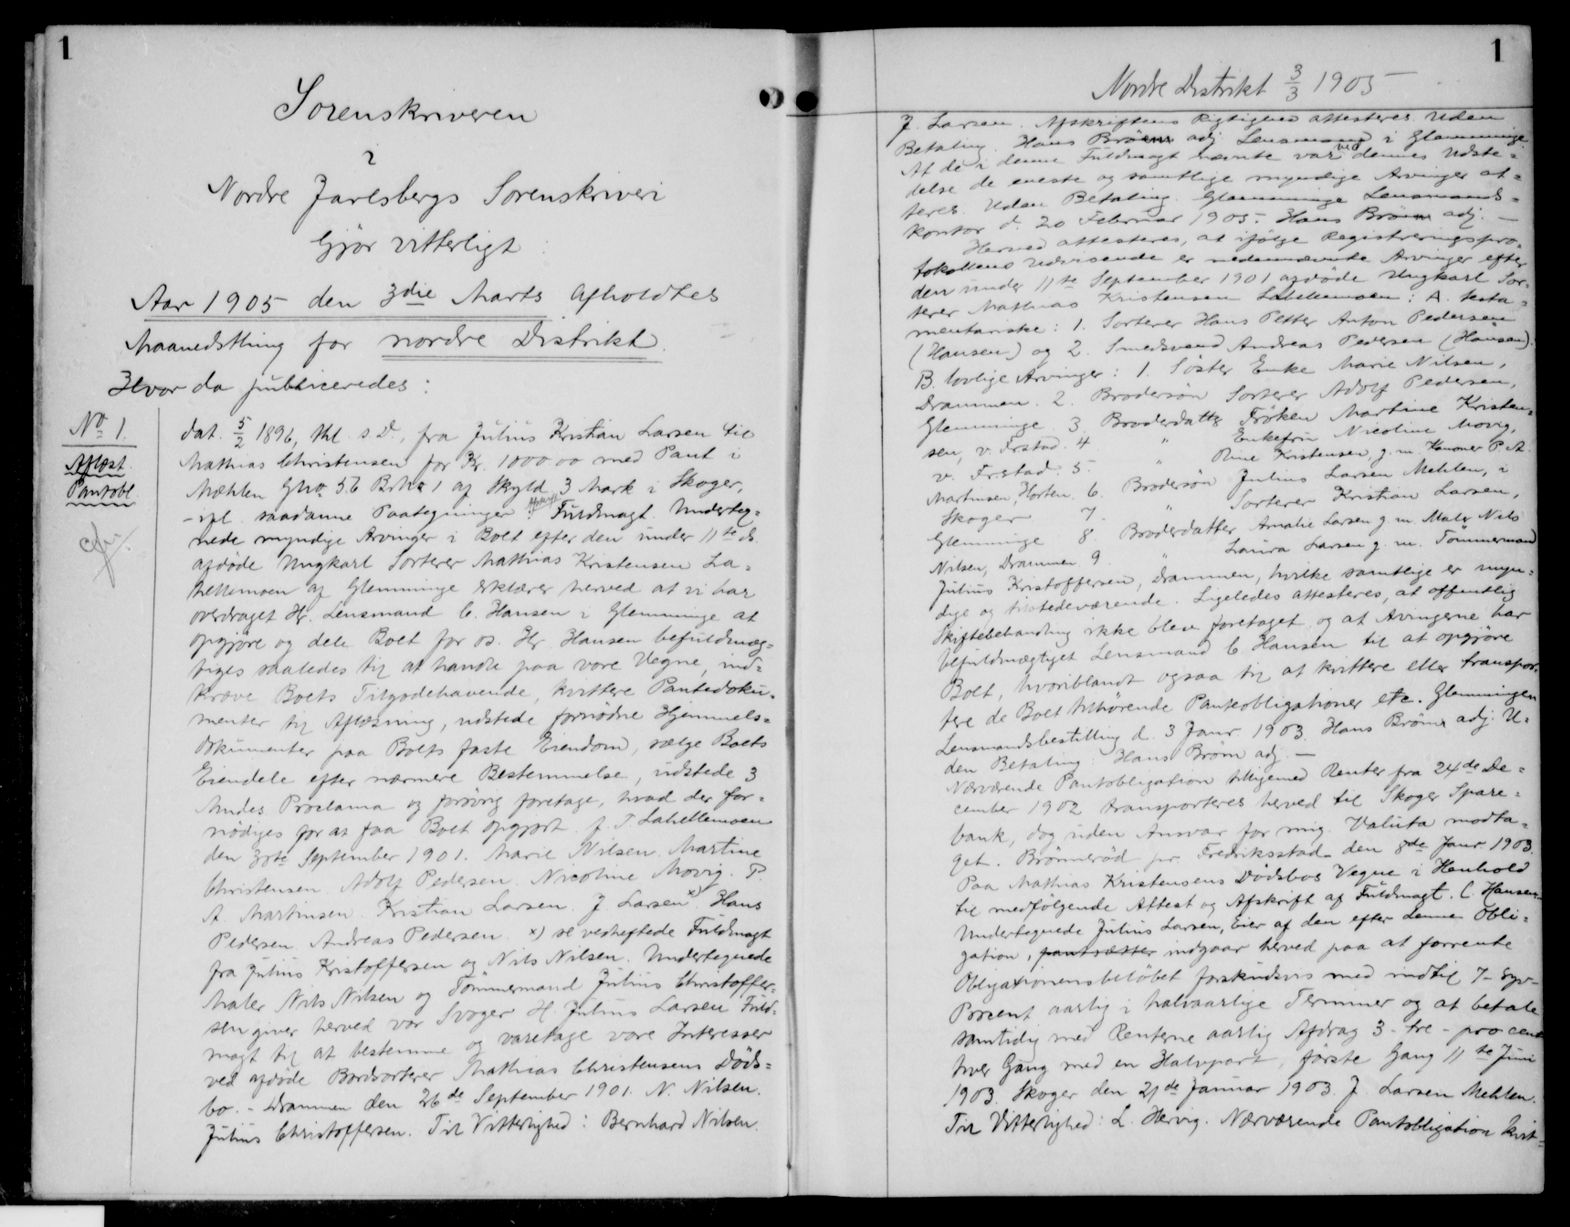 1
Sorenskriveren
i
Nordre Jarlsbergs Sorenskriveri
Gjør vitterligt:
Aar 1905 den 3die Marts afholdtes
Maanedstthing for nordre Distrikt.
Hvor da publiceredes:
No 1.
Aflæst
Pantobl.
dat. 5/2 1896, thl. s. D., fra Julius Kristian Larsen til
Mathias Christensen for Kr. 1000.00 med Pant i
Mæhlen Gno. 56 Bno 1 af Skyld 3 Mark i Skoger,
saadanne Paategninger: Afskrift Fuldmagt. Underteg-
nede myndige Arvinger i Boet efter den under 11te ds.
afdøde Ungkarl Sorterer Mathias Kristensen La-
hellemoen af Glemminge erklærer herved at vi har
overdraget Hr. Lensmand C. Hansen i Glemminge at
opgjøre og dele Boet for os. Hr. Hansen befuldmæg-
tiges saaledes til at handle paa vore Vegne, ind-
kræve Boets Tilgodehavende, kvittere Pantedoku-
menter til Aflæsning, udstede fornødne Hjemmels-
dokumenter paa Boets faste Eiendom, sælge Boets
Eiendele efter nærmere Bestemmelse, udstede 3
Mndes Proclama og forøvrig foretage, hvad der for-
nødiges for at faa Boet opgjort. p. T. Lahellemoen
den September 1901. Marie Nilsen. Martine
Christensen. Adolf Pedersen. Nicoline Movig. P.
A. Martinsen. Kristian Larsen. J Larsen x) Hans
Pedersen. Andreas Pedersen. x) se vedheftede Fuldmagt
fra Julius Kristoffersen og Nils Nilsen. Undertegnede
Maler Nils Nilsen og Tømmermand Julius Christoffer-
sen giver herved vor Svoger H. Julius Larsen Fuld-
magt til at bestemme og varetage vore Interesser
ved afdøde Bordsorterer Mathias Christensens Døds-
bo. - Drammen den 26de September 1901. N. Nilsen.
Julius Christoffersen. Til Vitterlighed: Bernhard Nilsen.
1
Nordre Distrikt 3/3 1905
J. Larsen. Afskriftens Rigtighed attesteres uden
Betaling. Hans Brörm adj. Lensmand i Glemminge
At de i denne Fuldmagt nævnte var ved dennes Udste-
delse de eneste og samtlige myndige Arvinger at-
teres. Uden Betaling. Glemminge Lensmands-
kontor d. 20 Februar 1905. Hans Brörm adj. -
Herved attesteres, at ifølge Registreringspro-
tokollens Udvisende er nedennævnte Arvinger efter
den under 11te September 1901 afdøde Ungkarl Sor-
terer Mathias Kristensen Lahellemoen: A. testa-
mentariske: 1. Sorterer Hans Petter Anton Pedersen
(Hansen) og 2. Smedsvend Andreas Pedersen (Hansen).
B. lovlige Arvinger: 1. Søster Enke Marie Nilsen,
Drammen. 2. Brodersøn Sorterer Adolf Pedersen,
Glemminge. 3. Broderdatter Frøken Martine Kristen-
sen, v. Frstad. 4 " Enkefru Nicoline Movig,
v. Frstad. 5. " Kristensen, g. m. P. A.
Martinsen, Horten. 6. Brodersøn Julius Larsen Mehlen, i
Skoger 7. " Sorterer Kristian Larsen,
Glemminge 8. Broderdatter Amalie Larsen g. m. Maler Nils
Nilsen, Drammen 9. " Laura Larsen g. m. Tømmermand
Julius Kristoffersen, Drammen, hvilke samtlige er myn-
dige og tilstedeværende. Ligeledes attesteres, at offentlig
Skiftebehandling ikke blev foretaget og at Arvingerne har
befuldmægtiget Lensmand C Hansen til at opgjøre
Boet, hvoriblandt ogsaa til at kvittere eller transpor-
tere de Boet tilhørende Panteobligationer etc. Glemminges
Lensmandsbestilling d. 3 Janr 1903. Hans Brörm adj. U-
den Betaling: Hans Brörm adj. -
Nærværende Pantobligation tilligemed Renter fra 24de De-
cember 1902 transporteres herved til Skoger Spare-
bank, dog uden Ansvar for mig. Valuta modta-
get. Brönnerød pr. Fredriksstad den 8de Janr 1903.
Paa Mathias Kristensens Dødsbos Vegne i Henhold
til medfølgende Attest og Afskrift af Fuldmagt. C Hansen
Undertegnede Julius Larsen, Eier af den efter denne Obli-
gation, pantsætter indgaar herved paa at forrente
Obligationensbeløbet forskudsvis med indtil 7- syv-
Procent aarlig i halvaarlige Terminer og at betale
samtidig med Renterne aarlig Afdrag 3- tre- procent
hver Gang med en Halvpart, første Gang 11te Juni
1903. Skoger den 21de Januar 1903. J. Larsen Mehlen.
Til Vitterlighed: L. Hervig. Nærværende Pantobligation kvit-